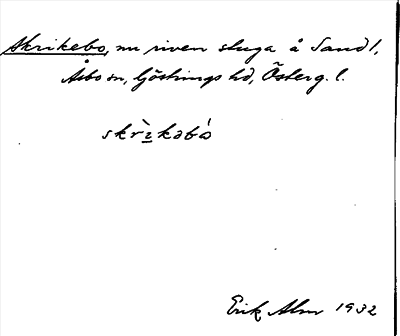 Skrikebo, nu riven stuga å Sand l.
Åsbo sn, Göstrings hd, Österg. l.
skrìkabó
Erik Alm 1932